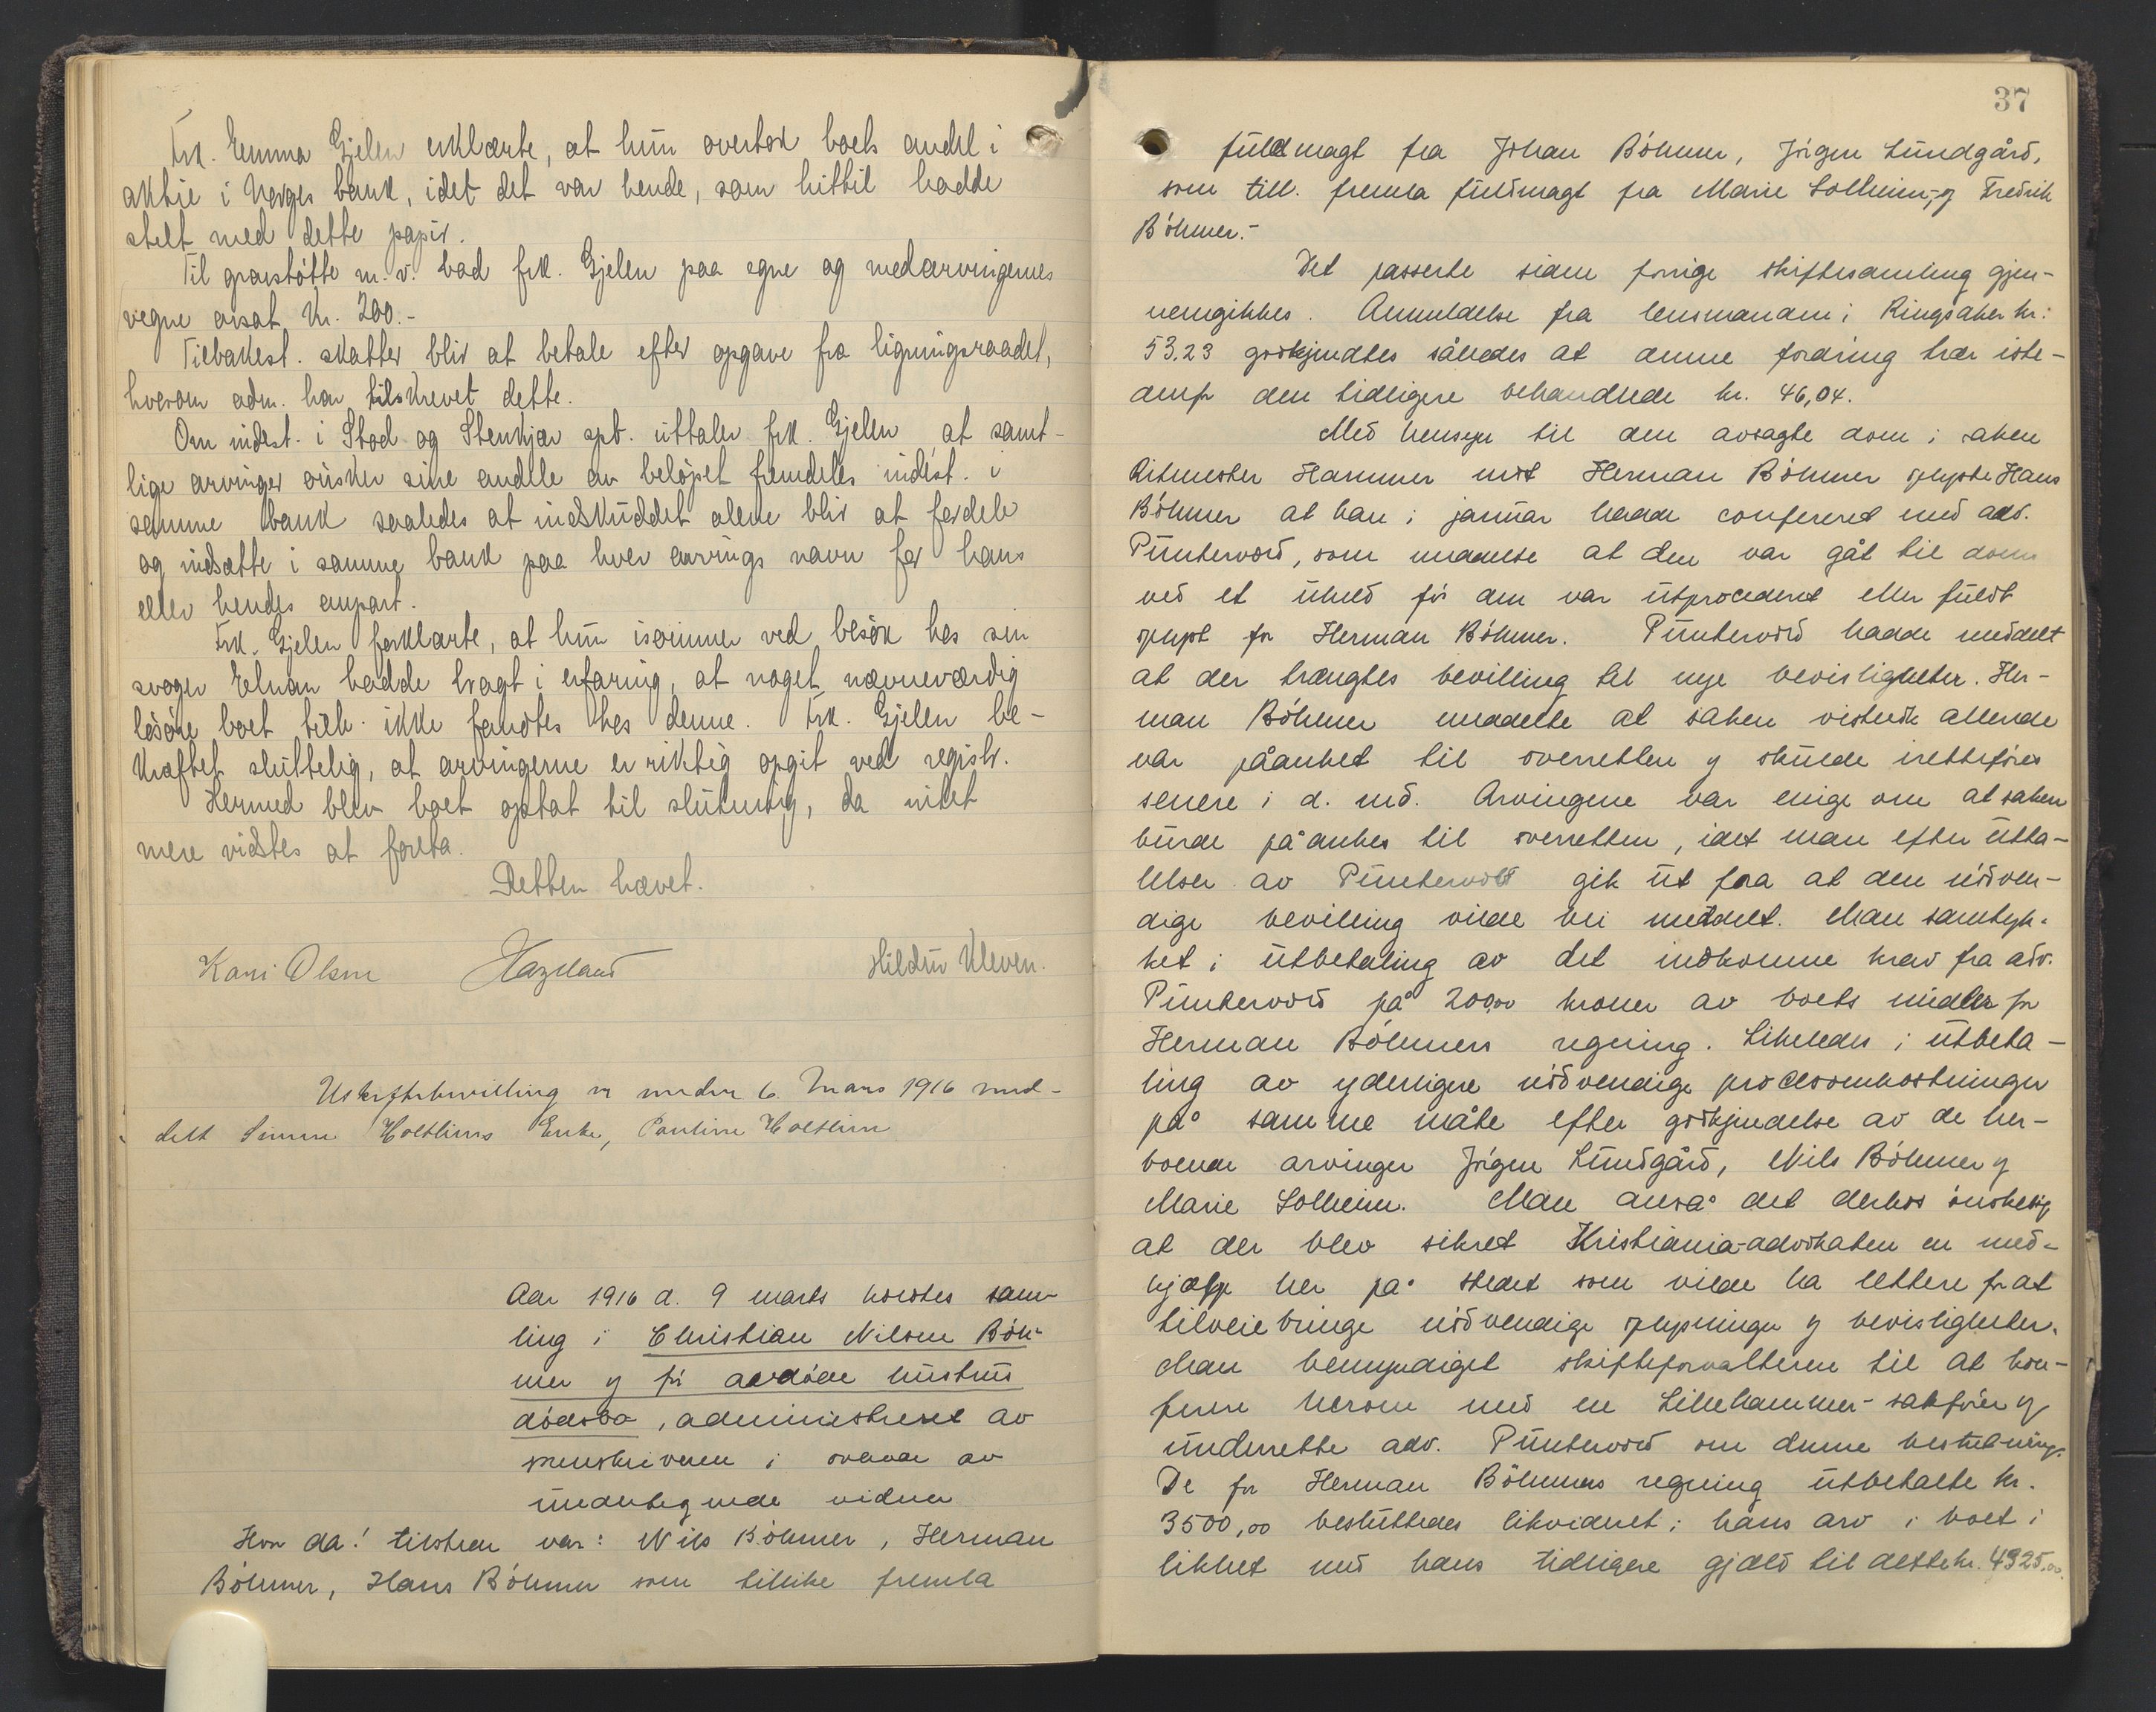 Frk. Emma Gjelen erklærte, at hun overtok boets andel i
aktie i Norges bank, idet det var hende, som hittil hadde
stelt med dette papir.
Til gravstøtte m. v. bad frk. Gjelen paa egne og medarvingernes
vegne avsat kr. 200.-
Tilbakest. skatter blir at betale efter opgave fra ligningsraadet,
hvorom adm. har tilskrevet dette.
Om indest. i Stod og Stenkjær spb. uttaler frk. Gjelen at samt-
lige arvinger ønsker sine andele av beløpet fremdeles indest. i
samme bank saaledes at indskuddet alene blir at fordele
og indsætte i samme bank paa hver arvings navn for hans
eller hendes anpart.
Frk. Gjelen forklarte, at hun isommer ved besøk hos sin
svoger Elnan hadde bragt i erfaring, at noget nævneværdig
løsøre boet tilh. ikke fandtes hos denne. Frk. Gjelen be-
kræftet sluttelig, at arvingerne er riktig opgit ved registr.
Hermed blev boet optat til slutning, da intet
mere vidstes at foreta.
Retten hævet.
Kari Olsen Hazeland Hildur Kleven.
Uskiftebevilling er under 6. Mars 1916 med-
delt Simen Holtliens Enke, Pauline Holtlien
Aar 1916 d. 9 marts holdtes sam-
ling i Christian Nilsen Böh-
mer og før avdøde hustrus
dødsbo, administreret av
sorenskriveren i overvær av
undertegnede vidner
Hvor da! tilstede var: Nils Böhmer, Herman
Böhmer, Hans Böhmer som tillike fremla
37
fuldmagt fra Johan Böhmer, Jörgen Lundgård,
som till. fremla fuldmagt fra Marie Solheim, og Fredrik
Böhmer.-
Det passerte siden forrige skiftesamling gjen-
nemgikkes. Anmeldelse fra lensmanden i Ringsaker kr:
53,23 godkjendtes således at denne fordring trær iste-
denfr den tidligere behandlede kr. 46,04.
Med hensyn til den avsagte dom i saken
Ritmester Hammer mot Herman Böhmer oplyste Hans
Böhmer at han i januar hadde confereret med adv.
Püntervold, som meddelte at den var gåt til doms
ved et uheld før den var utprocederet eller fuldt
oplyst for Herman Böhmer. Püntervold hadde meddelt
at der trængtes bevilling til nye bevisligheter. Her-
man Böhmer meddelte at saken vistnok allerede
var påanket til overretten og skulde iretteføres
senere i d. md. Arvingene var enige om at saken
burde påankes til overretten, idet man efter utta-
lelser av Püntervold gik ut fra at den nödven-
dige bevilling vilde bli meddelt. Man samtyk-
ket i utbetaling av det indkomne krav fra adv.
Püntervold på 200,00 kroner av boets midler for
Herman Böhmers regning. Likeledes i utbeta-
ling av yderligere nödvendige procesomkostninger
på samme måte efter godkjendelse av de her-
boende arvinger Jörgen Lundgård, Nils Böhmer og
Marie Solheim. Man anså det derhos önskelig
at der blev sikret Kristiania-advokaten en med-
hjælp her på stedet som vilde ha lettere for at
tilveiebringe nödvendige oplysninger og bevisligheter.
Man bemyndiget skifteforvalteren til at kon-
ferere herom med en Lillehammer-sakförer og
underrette adv. Püntervold om denne beslutning.
De for Herman Böhmers regning utbetalte kr.
3500,00 besluttedes likvideret i hans arv i boet i
likhet med hans tidligere gjæld til dette kr. 4925,00.